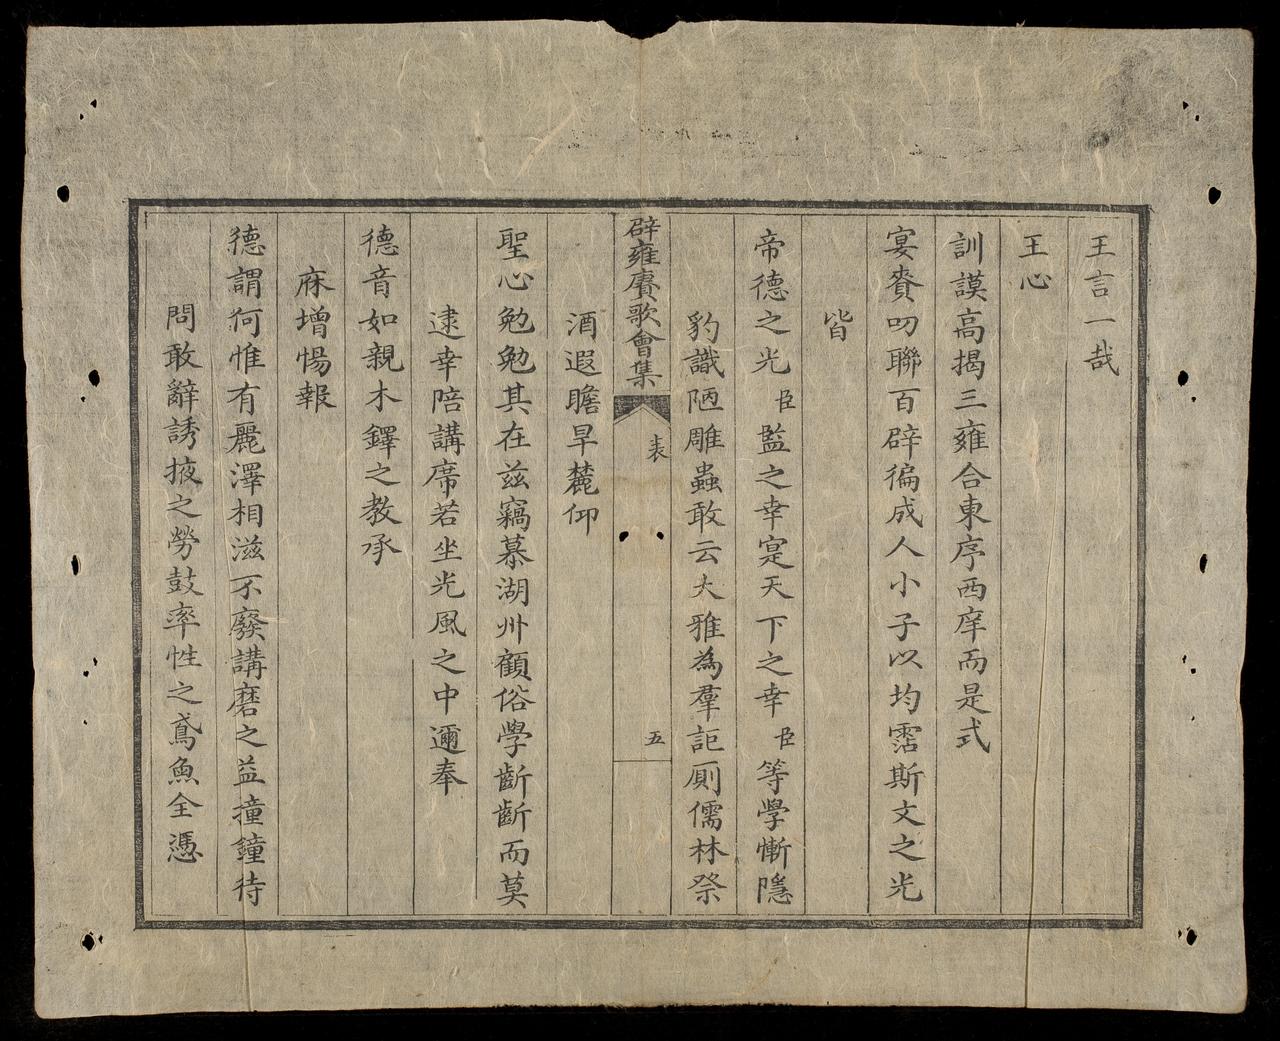 王言一哉
王心
訓謨高揭三雍合東序西庠而是式
宴賚叨聯百辟徧成人小子以均霑斯文之光
皆
帝德之光臣監之幸寔天下之幸臣等學慚隱
豹識陋雕蟲敢云大雅為羣詎厠儒林祭
辟雍賡歌會集
表
五
酒遐瞻旱麓仰
聖心勉勉其在玆竊慕湖州顧俗學齗齗而莫
逮幸陪講席若坐光風之中邇奉
德音如親木鐸之教承
庥增惕報
德謂何惟有麗澤相滋不廢講磨之益撞鐘待
問敢辭誘掖之勞鼓率性之鳶魚全憑